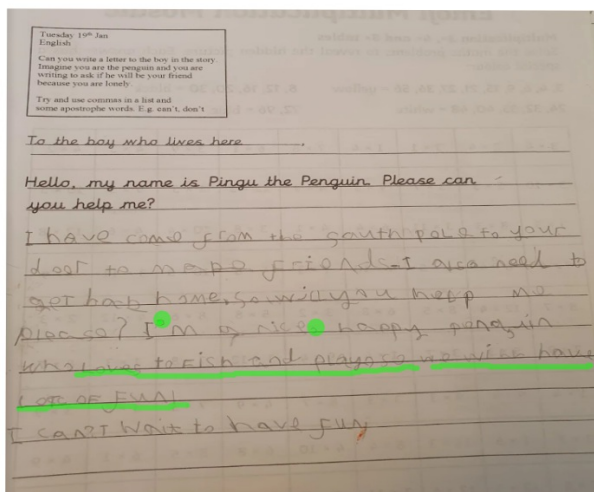 Tuesday 19th Jan
English
Can you write a letter to the boy in the story.
Imagine you are the penguin and you are
writing to ask if he will be your friend
because you are lonely.
Try and use commas in a list and
some apostrophe words. E.g. can't, don't
To the boy who lives here .
Hello, my name is Pingu the Penguin. Please can
you help me?
I have come from the south pole to your
door to make friends. I also need to
get back home, so will you help me
please? I'm a nice, happy penguin
who loves to fish and play we will have
lots of fun!
I can't wait to have fun